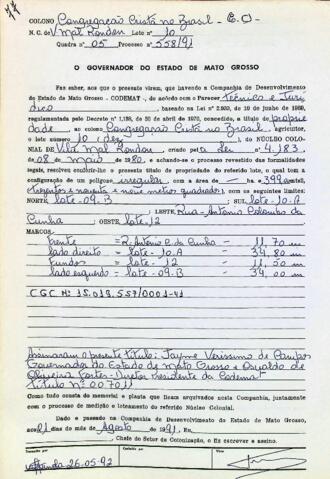 COLONO Congregação Cristã no Brasil - C.O-
N. C. de V. Mal Rondon Lote n.º 10
Quadra n.º 05 Processo n.º 558/91
O GOVERNADOR DO ESTADO DE MATO GROSSO
Faz saber, aos que o presente virem, que havendo a Companhia de Desenvolvimento
do Estado de Mato Grosso - CODEMAT -, de acôrdo com o Parecer Técnico e Jurí
dico, baseado na Lei de 10 de Junho de
regulamentada pelo Decreto n.º de 30 de abril de 1970, concedido, a título de proprie
dade ao colono Congregação Cristã no Brasil, agricultor,
o lote número 10 (dez), do NÚCLEO COLO-
NIAL DE Vila Mal Rondon, criado pela Lei n.º 4.183,
de 08 de Maio de 1980, e achando-se o processo revestido das formalidades
legais, resolveu conferir-lhe o presente título de propriedade do referido lote, o qual com a
configuração de um polígono irregular com a área de ha e 399 (
trezentos e noventa e nove metros quadrados, com os seguintes limites:
NORTE, lote-09-B; SUL, lote-10-A
; LESTE, Rua-Antônio Colombo da
Cunha; OESTE, lote-12
MARCOS:
frente = R. Antônio C. da Cunha - 11,70 m
lado direito = lote-10-A - 34,80 m
fundos = lote-12 - 11,50 m
lado esquerdo = lote-09-B - 34,00 m
CGC Nº 15.019.557/0001-41
Assinaram o presente título: Jayme Verissimo de Campos
Governador do Estado de Mato Grosso e Oswaldo de
Oliveira Fortes - Diretor Presidente da Codemat
Título Nº 007011
Como tudo consta do memorial e planta que ficam arquivados nesta Companhia, juntamente
com o processo de medição e loteamento do referido Núcleo Colonial.
Dado e passado na Companhia de Desenvolvimento do Estado de Mato Grosso,
aos 21 dias do mês de Agosto de 1991. Eu,
Chefe do Setor de Colonização, o fiz escrever e assino.
Conferido por Visto
26.05.92